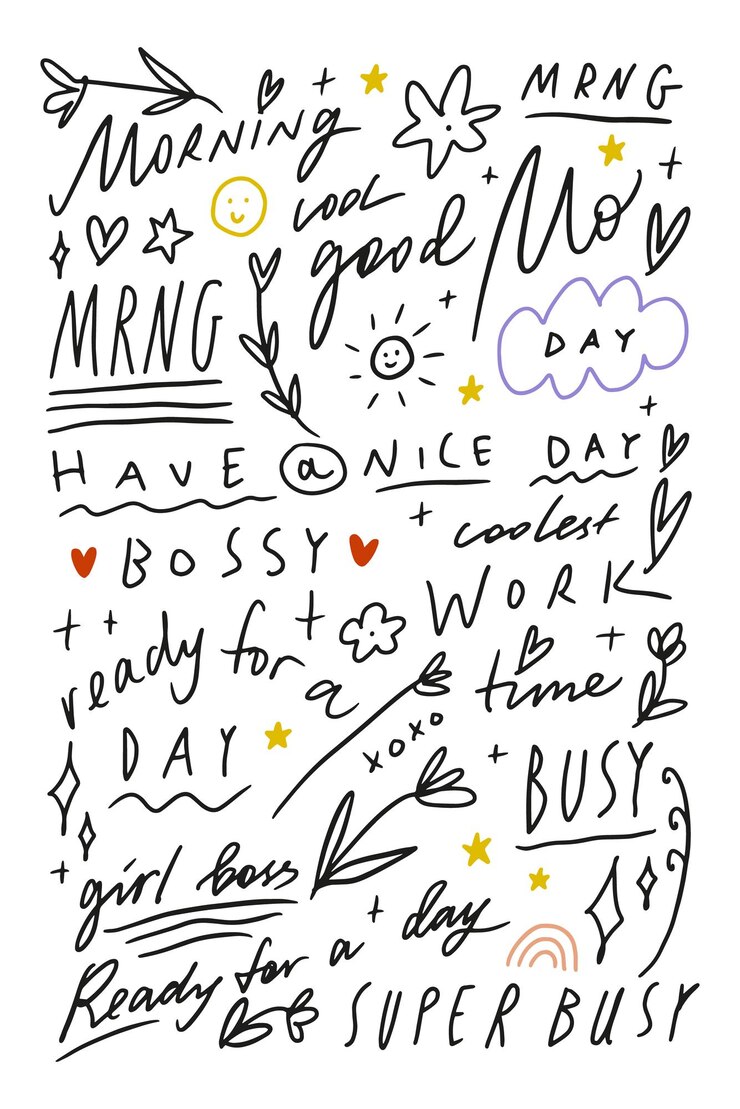 MRNG
MORNING
cool
good
Mo
MRNG
DAY
HAVE a NICE DAY
coolest
BOSSY
WORK
ready for a
time
DAY
xoxo
BUSY
girl boss
day
Ready for a
SUPER BUSY